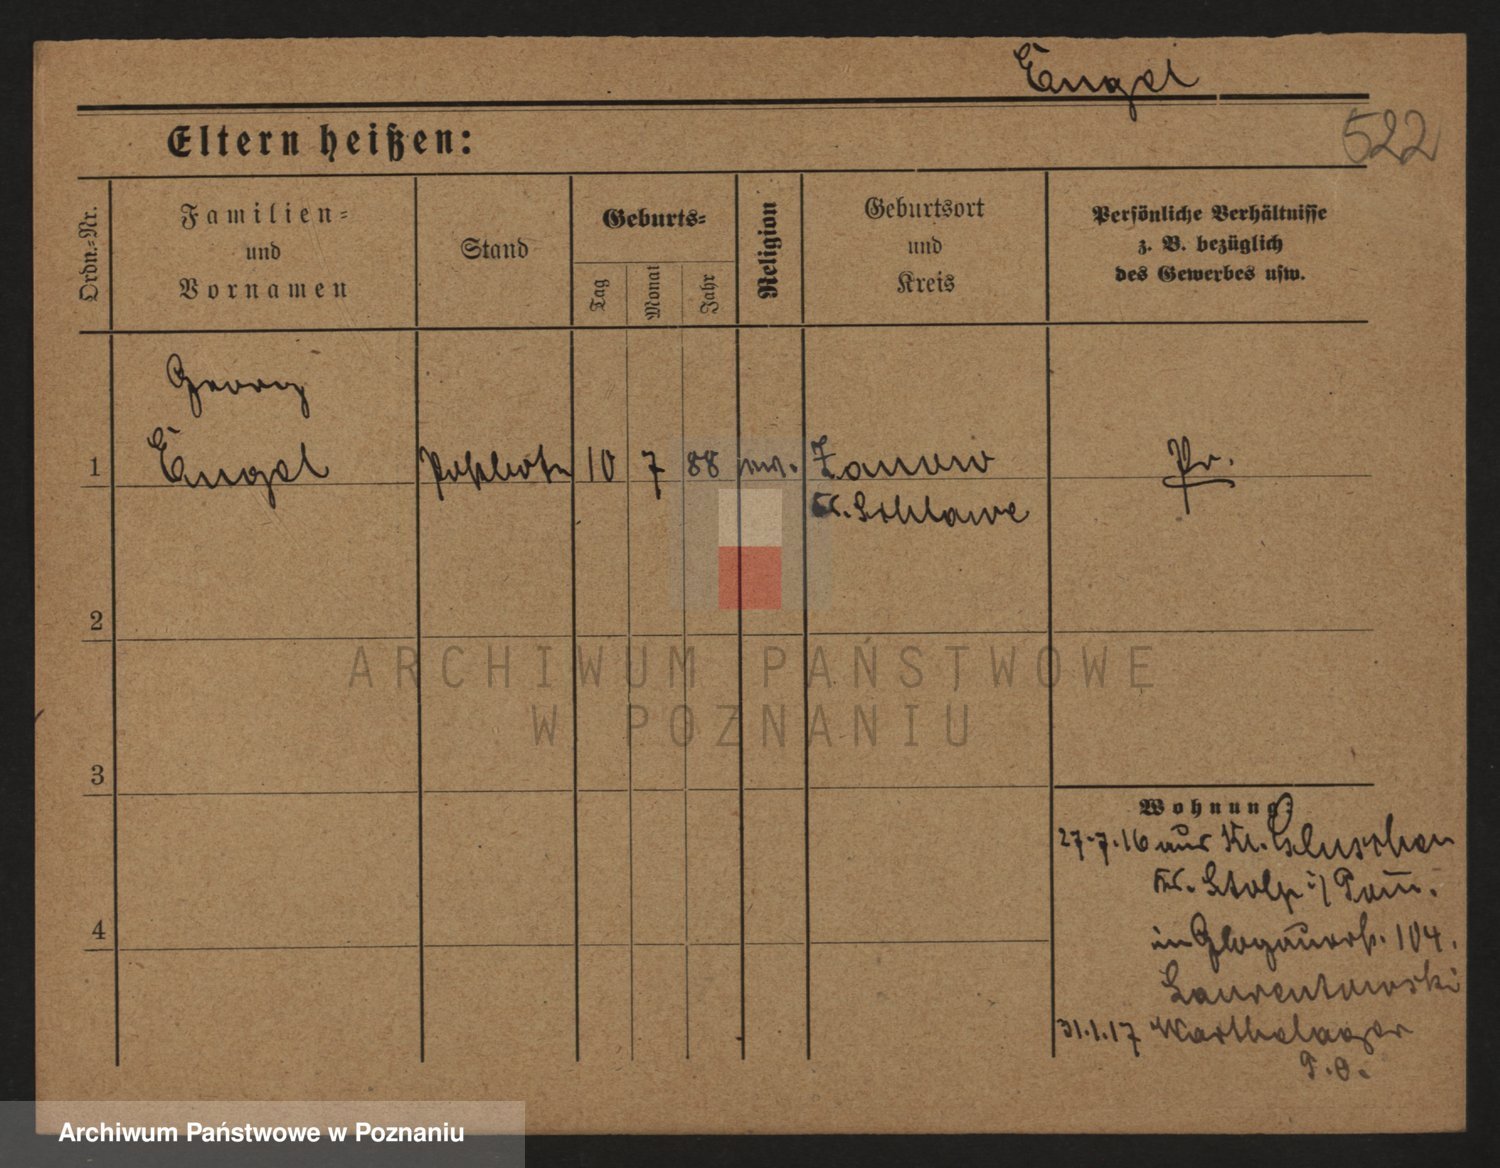 Engel
522
Eltern heißen:
Ordn.-Nr.
Familien-
und
Vornamen
Stand
Geburts-
Tag
Monat
Jahr
Religion
Geburtsort
und
Kreis
Persönliche Verhältnisse
z. B. bezüglich
des Gewerbes usw.
Georg
1 Engel Postbote 10 7 88 ev. Zanow Pr.
Kr. Schlawe
2
ARCHIWUM PAŃSTWOWE
W POZNANIU
3
Wohnung:
27.7.16 aus Kl. Gluschen
Kr. Stolp i/Pom.
4
in Glogauerstr. 104.
Laurentowski
31.1.17 Warthelager
P.O.
Archiwum Państwowe w Poznaniu